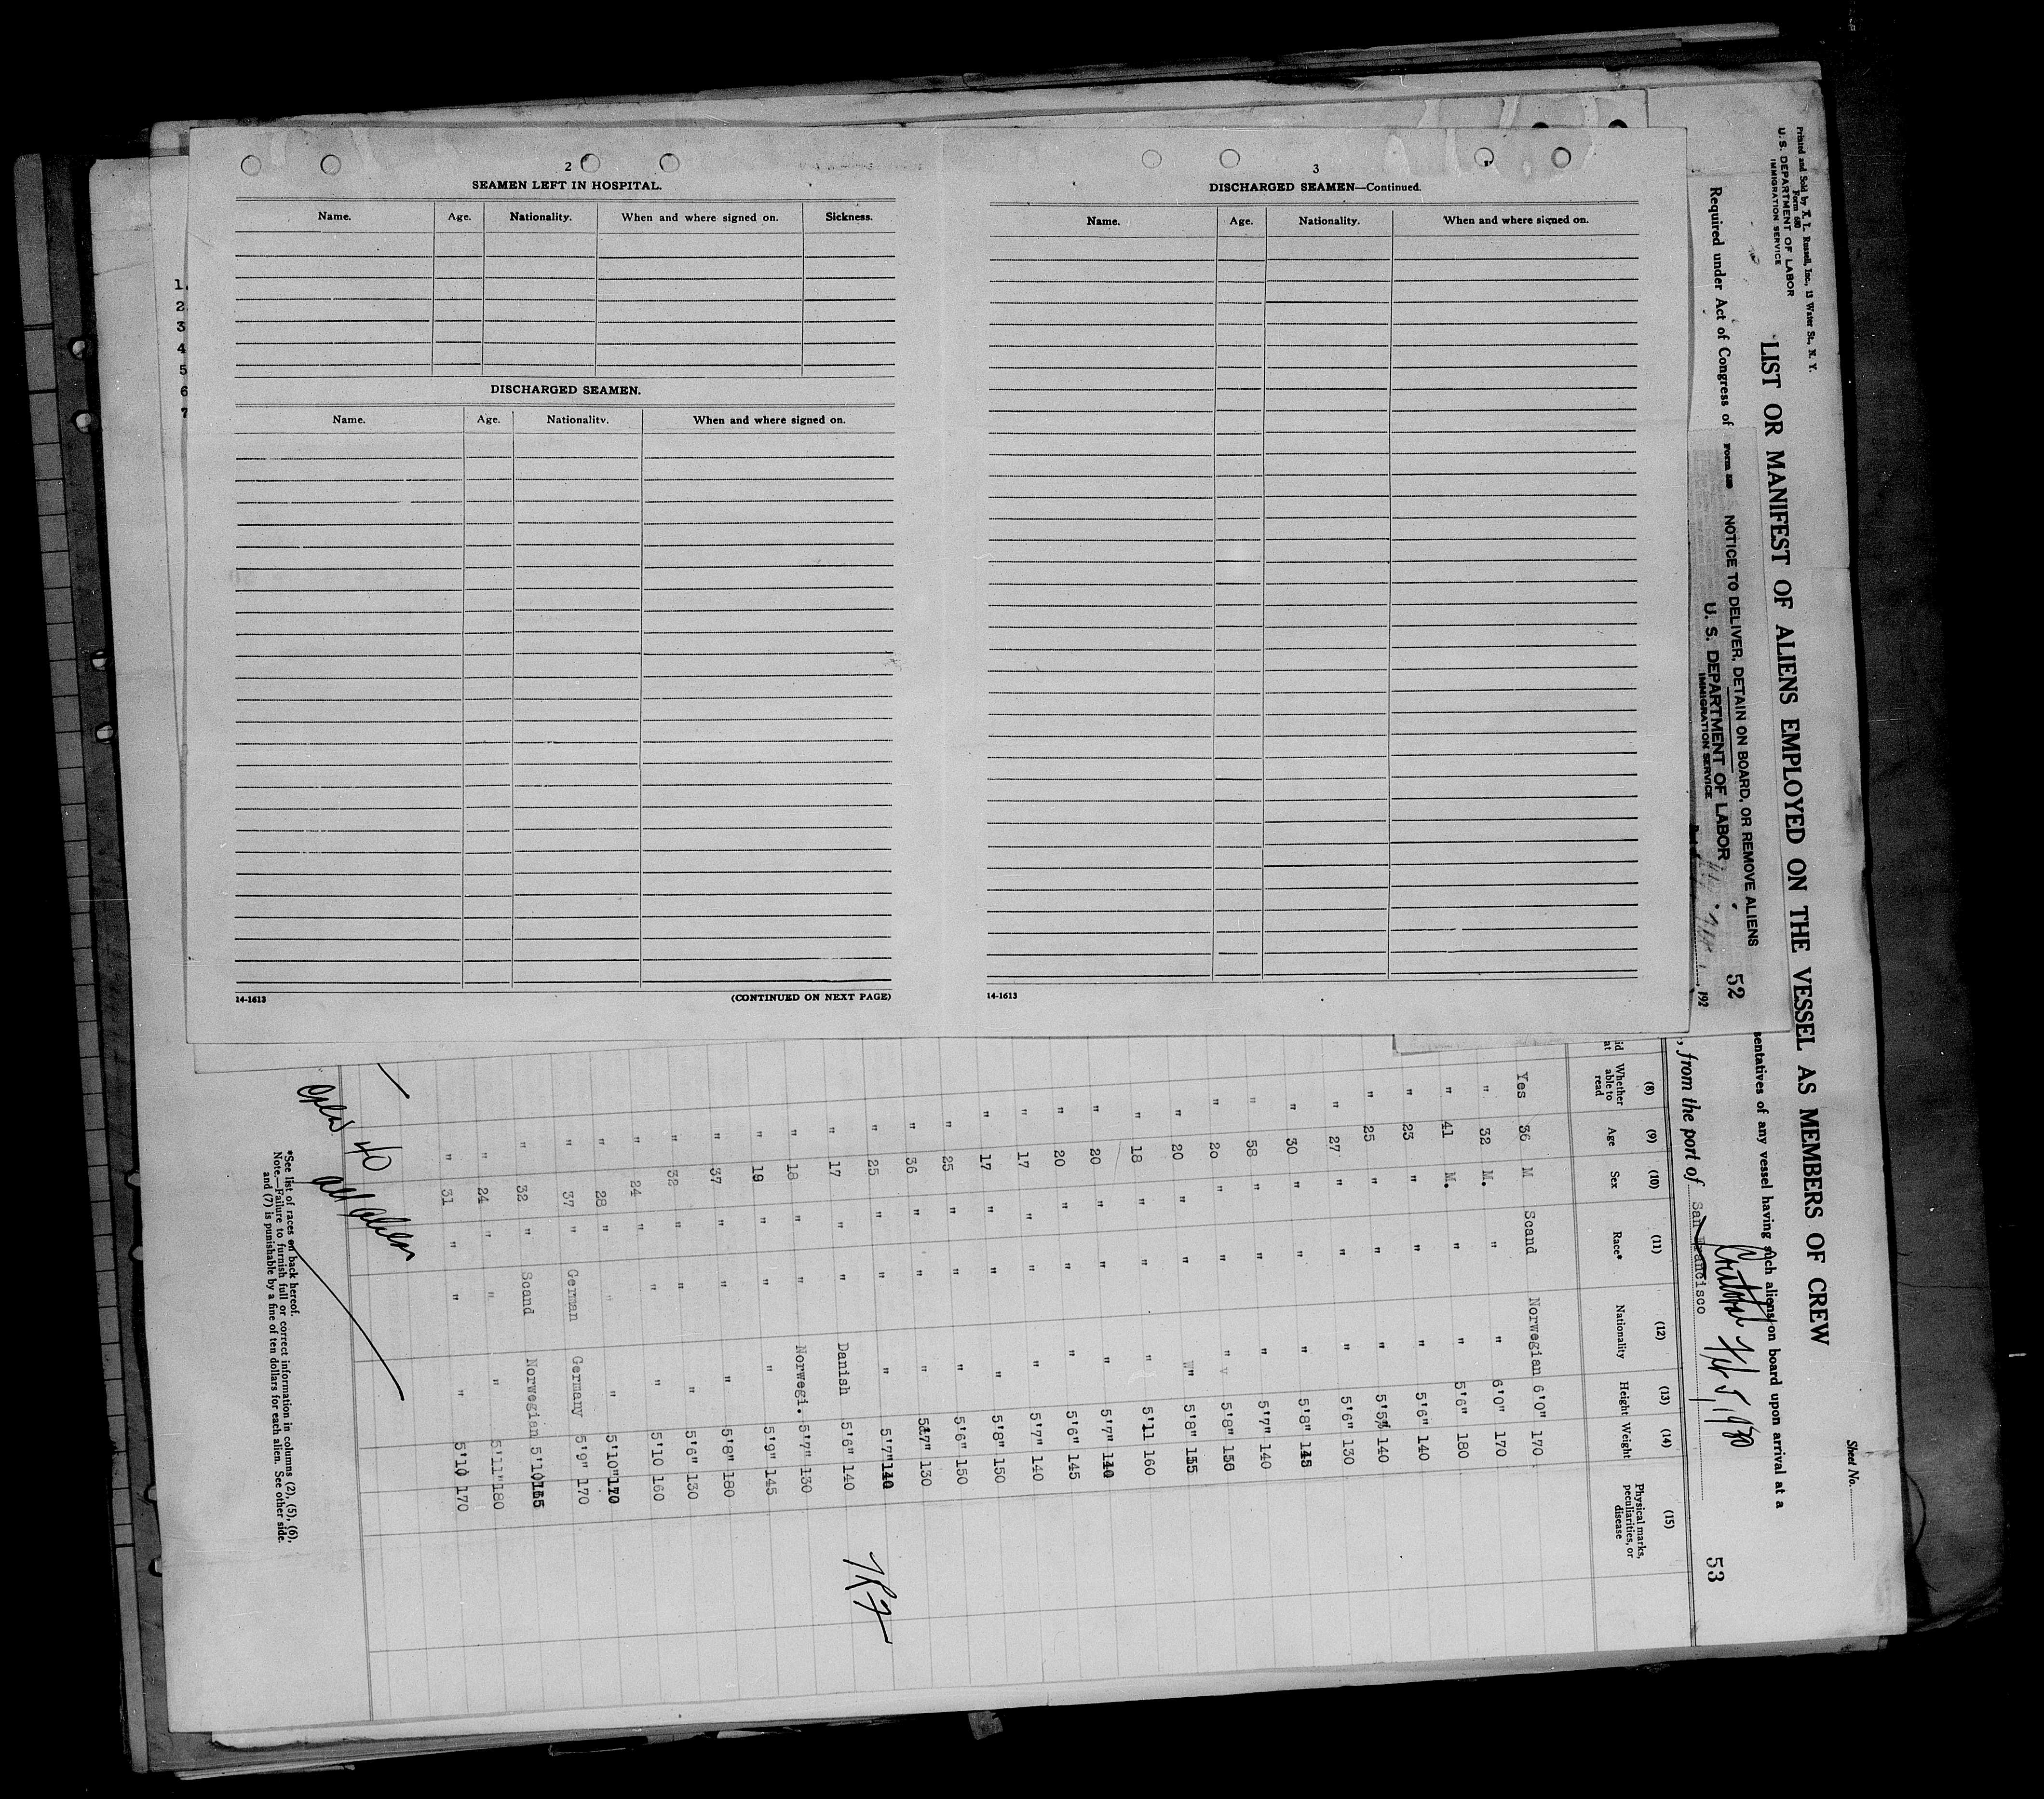 2
SEAMEN LEFT IN HOSPITAL.
Name. Age. Nationality. When and where signed on. Sickness.
DISCHARGED SEAMEN.
Name. Age. Nationality. When and where signed on.
14-1613 (CONTINUED ON NEXT PAGE)
3
DISCHARGED SEAMEN—Continued.
Name. Age. Nationality. When and where signed on.
14-1613
1.
2
3
4
5
6
Printed and Sold by X. L. Russell, Inc., 13 Water St., N. Y.
Form 680
U. S. DEPARTMENT OF LABOR
IMMIGRATION SERVICE
Sheet No.
LIST OR MANIFEST OF ALIENS EMPLOYED ON THE VESSEL AS MEMBERS OF CREW
Required under Act of Congress of
sentatives of any vessel having such aliens on board upon arrival at a
NOTICE TO DELIVER, DETAIN ON BOARD, OR REMOVE ALIENS 52
U. S. DEPARTMENT OF LABOR
IMMIGRATION SERVICE
, 192
, from the port of San Francisco
Feb 5, 1930
53
(8) (9) (10) (11) (12) (13) (14) (15)
Whether able to read Age Sex Race* Nationality Height Weight Physical marks, peculiarities, or disease
Yes 36 M Scand Norwegian 6'0" 170
" 32 M. " " 6'0" 170
" 41 M. " " 5'6" 180
" 23 " " " 5'6" 140
" 25 " " " 140
" 27 " " " 5'6" 130
" 30 " " " 5'8"
" 58 " " " 5'7" 140
" 20 " " " 5'8"
" 20 " " " 5'8"
" 18 " " " 5'11 160
" 20 " " " 5'7"
" 20 " " " 5'6" 145
" 17 " " " 5'7" 140
" 17 " " " 5'8" 150
" 25 " " " 5'6" 150
" 36 " " " 130
" 25 " " " 5'7"
" 17 " " Danish 5'6" 140
" 18 " " Norwegi. 5'7" 130
" 19 " " " 5'9" 145
" 37 " " " 5'8" 180
" 32 " " " 5'6" 130
" 24 " " " 5'10 160
" 28 " " " 5'10"
" 37 " German Germany 5'9" 170
" 32 " Scand Norwegian
" 24 " " " 5'11" 180
" 31 " " " 5'10 170
40
*See list of races on back hereof.
Note.—Failure to furnish full or correct information in columns (2), (5), (6),
and (7) is punishable by a fine of ten dollars for each alien. See other side.